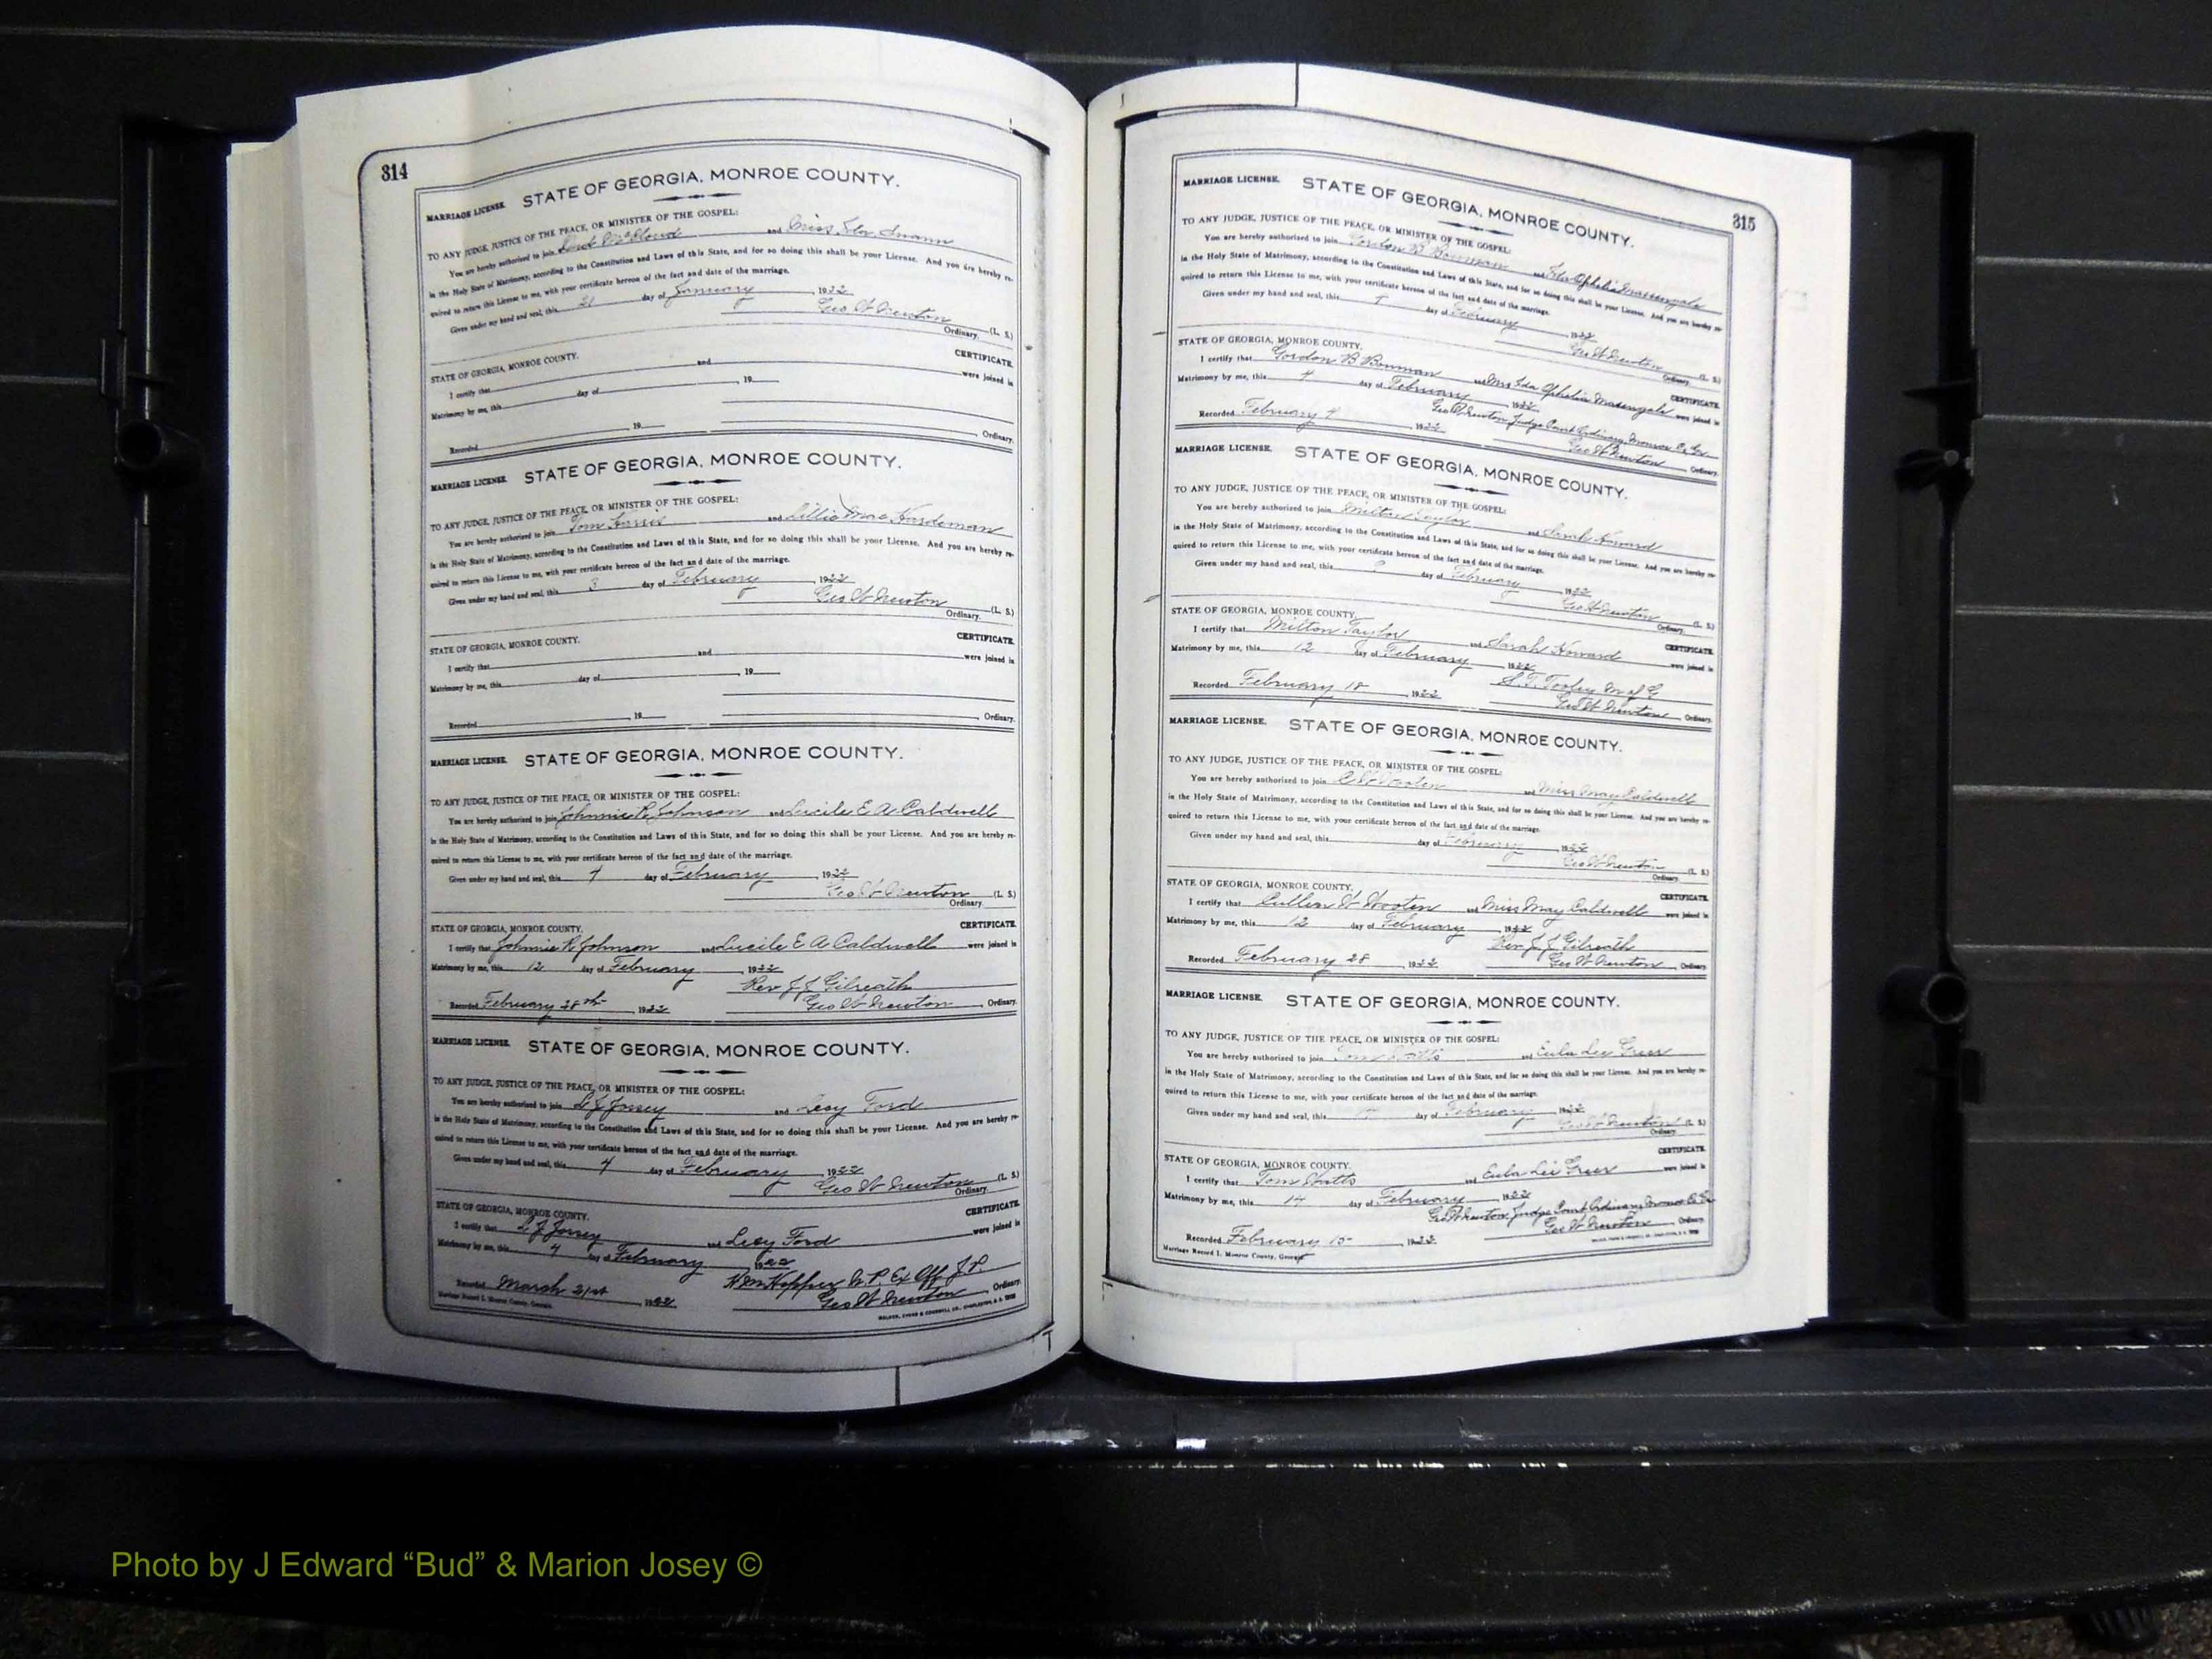 314
MARRIAGE LICENSE. STATE OF GEORGIA, MONROE COUNTY.
TO ANY JUDGE, JUSTICE OF THE PEACE, OR MINISTER OF THE GOSPEL:
You are hereby authorized to join and Miss
in the Holy State of Matrimony, according to the Constitution and Laws of this State, and for so doing this shall be your License. And you are hereby re-
quired to return this License to me, with your certificate hereon of the fact and date of the marriage.
Given under my hand and seal, this 21 day of January, 1922
Geo W Newton (L. S.)
Ordinary.
STATE OF GEORGIA, MONROE COUNTY. CERTIFICATE.
I certify that and were joined in
Matrimony by me, this day of , 19
Recorded 19 Ordinary.
MARRIAGE LICENSE. STATE OF GEORGIA, MONROE COUNTY.
TO ANY JUDGE, JUSTICE OF THE PEACE, OR MINISTER OF THE GOSPEL:
You are hereby authorized to join Tom Harris and Lillie Mae Hardeman
in the Holy State of Matrimony, according to the Constitution and Laws of this State, and for so doing this shall be your License. And you are hereby re-
quired to return this License to me, with your certificate hereon of the fact and date of the marriage.
Given under my hand and seal, this 3 day of February, 1922
Geo W Newton (L. S.)
Ordinary.
STATE OF GEORGIA, MONROE COUNTY. CERTIFICATE.
I certify that and were joined in
Matrimony by me, this day of , 19
Recorded , 19 Ordinary.
MARRIAGE LICENSE. STATE OF GEORGIA, MONROE COUNTY.
TO ANY JUDGE, JUSTICE OF THE PEACE, OR MINISTER OF THE GOSPEL:
You are hereby authorized to join Johnnie R Johnson and Lucile E A Caldwell
in the Holy State of Matrimony, according to the Constitution and Laws of this State, and for so doing this shall be your License. And you are hereby re-
quired to return this License to me, with your certificate hereon of the fact and date of the marriage.
Given under my hand and seal, this 4 day of February, 1922
Geo W Newton (L. S.)
Ordinary.
STATE OF GEORGIA, MONROE COUNTY. CERTIFICATE.
I certify that Johnnie R Johnson and Lucile E A Caldwell were joined in
Matrimony by me, this 12 day of February, 1922
Rev J J Gilreath
Recorded February 28th, 1922 Geo W Newton, Ordinary.
MARRIAGE LICENSE. STATE OF GEORGIA, MONROE COUNTY.
TO ANY JUDGE, JUSTICE OF THE PEACE, OR MINISTER OF THE GOSPEL:
You are hereby authorized to join L J Jossey and Leoy Ford
in the Holy State of Matrimony, according to the Constitution and Laws of this State, and for so doing this shall be your License. And you are hereby re-
quired to return this License to me, with your certificate hereon of the fact and date of the marriage.
Given under my hand and seal, this 4 day of February, 1922
Geo W Newton (L. S.)
Ordinary.
STATE OF GEORGIA, MONROE COUNTY. CERTIFICATE.
I certify that L J Jossey and Ford were joined in
Matrimony by me, this 4 day of February 1922
N. P. Ex Off J. P.
Recorded March 21st, 1922 Geo W Newton, Ordinary.
Marriage Record I. Monroe County, Georgia
WALKER, EVANS & COGSWELL CO., CHARLESTON, S. C.
315
MARRIAGE LICENSE. STATE OF GEORGIA, MONROE COUNTY.
TO ANY JUDGE, JUSTICE OF THE PEACE, OR MINISTER OF THE GOSPEL:
You are hereby authorized to join Gordon B Bowman and Ida Ophelia Massengale
in the Holy State of Matrimony, according to the Constitution and Laws of this State, and for so doing this shall be your License. And you are hereby re-
quired to return this License to me, with your certificate hereon of the fact and date of the marriage.
Given under my hand and seal, this 4 day of February, 1922
Geo W Newton (L. S.)
Ordinary.
STATE OF GEORGIA, MONROE COUNTY. CERTIFICATE.
I certify that Gordon B Bowman and Mrs Ida Ophelia Massengale were joined in
Matrimony by me, this 4 day of February, 1922
Geo W Newton Judge Court Ordinary, Monroe Co Ga
Recorded February 4, 1922 Geo W Newton, Ordinary.
MARRIAGE LICENSE. STATE OF GEORGIA, MONROE COUNTY.
TO ANY JUDGE, JUSTICE OF THE PEACE, OR MINISTER OF THE GOSPEL:
You are hereby authorized to join Milton Taylor and Sarah Howard
in the Holy State of Matrimony, according to the Constitution and Laws of this State, and for so doing this shall be your License. And you are hereby re-
quired to return this License to me, with your certificate hereon of the fact and date of the marriage.
Given under my hand and seal, this day of February, 1922
Geo W Newton (L. S.)
Ordinary.
STATE OF GEORGIA, MONROE COUNTY. CERTIFICATE.
I certify that Milton Taylor and Sarah Howard were joined in
Matrimony by me, this 12 day of February, 1922
S. T. Tooley M of G
Recorded February 18, 1922 Geo W Newton, Ordinary.
MARRIAGE LICENSE. STATE OF GEORGIA, MONROE COUNTY.
TO ANY JUDGE, JUSTICE OF THE PEACE, OR MINISTER OF THE GOSPEL:
You are hereby authorized to join C W Wooten and Miss May Caldwell
in the Holy State of Matrimony, according to the Constitution and Laws of this State, and for so doing this shall be your License. And you are hereby re-
quired to return this License to me, with your certificate hereon of the fact and date of the marriage.
Given under my hand and seal, this day of February, 1922
Geo W Newton (L. S.)
Ordinary.
STATE OF GEORGIA, MONROE COUNTY. CERTIFICATE.
I certify that Cullen W Wooten and Miss May Caldwell were joined in
Matrimony by me, this 12 day of February, 1922
Rev J J Gilreath
Recorded February 28, 1922 Geo W Newton, Ordinary.
MARRIAGE LICENSE. STATE OF GEORGIA, MONROE COUNTY.
TO ANY JUDGE, JUSTICE OF THE PEACE, OR MINISTER OF THE GOSPEL:
You are hereby authorized to join Tom Watts and Eula Lee Greer
in the Holy State of Matrimony, according to the Constitution and Laws of this State, and for so doing this shall be your License. And you are hereby re-
quired to return this License to me, with your certificate hereon of the fact and date of the marriage.
Given under my hand and seal, this day of February, 1922
Geo W Newton (L. S.)
Ordinary.
STATE OF GEORGIA, MONROE COUNTY. CERTIFICATE.
I certify that Tom Watts and Eula Lee Greer were joined in
Matrimony by me, this 14 day of February, 1922
Geo W Newton Judge Court Ordinary Monroe Co Ga
Recorded February 15, 1922 Geo W Newton, Ordinary.
Marriage Record I. Monroe County, Georgia
WALKER, EVANS & COGSWELL CO., CHARLESTON, S. C.
Photo by J Edward “Bud” & Marion Josey ©